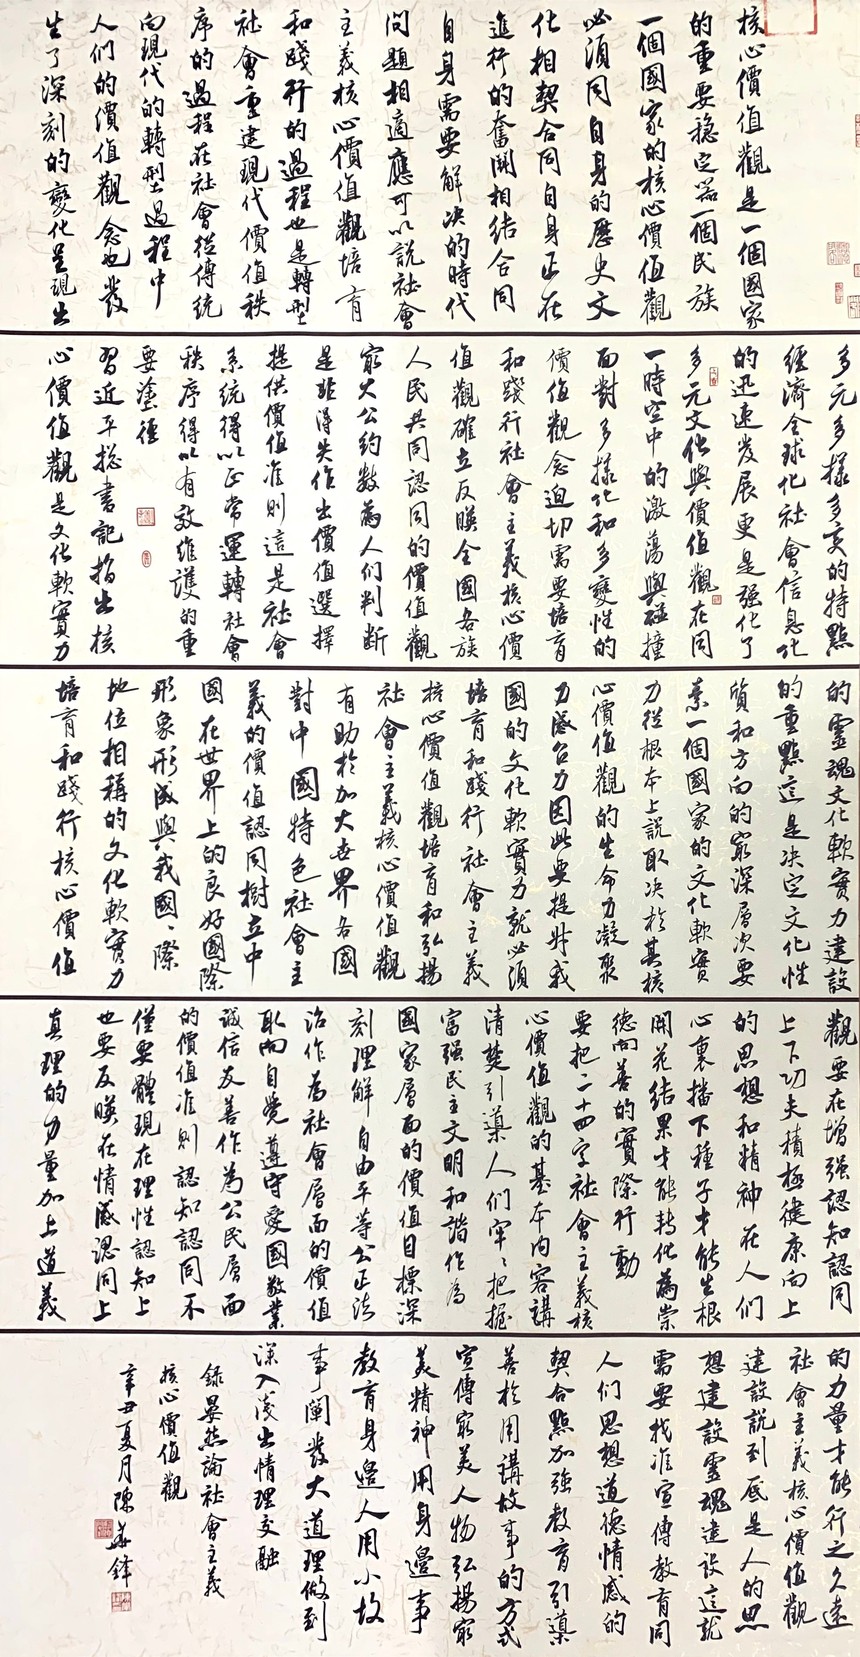 核心價值觀是一個國家
的重要穩定器一個民族
一個國家的核心價值觀
必須同自身的歷史文
化相契合同自身正在
進行的奮鬥相結合同
自身需要解決的時代
問題相適應可以說社會
主義核心價值觀培育
和踐行的過程也是轉型
社會重建現代價值秩
序的過程在社會從傳統
向現代的轉型過程中
人们的價值觀念也發
生了深刻的變化呈現出
多元多樣多变的特點
經濟全球化社會信息化
的迅速发展更是强化了
多元文化與價值觀在同
一時空中的激蕩與碰撞
面對多樣化和多變性的
價值觀念迫切需要培育
和踐行社會主義核心價
值觀確立反映全國各族
人民共同認同的價值觀
最大公约數為人们判断
是非得失作出價值選擇
提供價值准則這是社會
系統得以正常運轉社會
秩序得以有效維護的重
要塗徑
習近平總書記指出核
心價值觀是文化軟實力
的靈魂文化軟實力建設
的重點這是决定文化性
質和方向的最深層次要
素一個國家的文化軟實
力從根本上説取决於其核
心價值觀的生命力凝聚
力感召力因此要提升我
國的文化軟實力就必須
培育和踐行社會主義
核心價值觀培育和弘揚
社會主義核心價值觀
有助於加大世界各國
對中國特色社會主
義的價值認同樹立中
國在世界上的良好國際
形象形成與我國、際
地位相稱的文化軟實力
培育和踐行核心價值
觀要在增强認知認同
上下功夫積極健康向上
的思想和精神在人们
心裏播下種子才能生根
開花結果才能轉化為崇
德向善的實際行動
要把二十四字社會主義核
心價值觀的基本内容講
清楚引導人们牢、把握
富强民主文明和諧作為
國家層面的價值目標深
刻理解自由平等公正法
治作為社會層面的價值
取向自覺遵守愛國敬業
誠信友善作為公民層面
的價值准則認知認同不
僅要體現在理性認知上
也要反映在情感認同上
真理的力量加上道義
的力量才能行之久遠
社會主義核心價值觀
建設説到底是人的思
想建設靈魂建設這就
需要找准宣傳教育同
人们思想道德情感的
契合點加强教育引導
善於用講故事的方式
宣傳最美人物弘揚最
美精神用身邊事
教育身邊人用小故
事闡發大道理做到
深入淺出情理交融
錄晏然論社會主義
核心價值觀
辛丑夏月陳益鋒